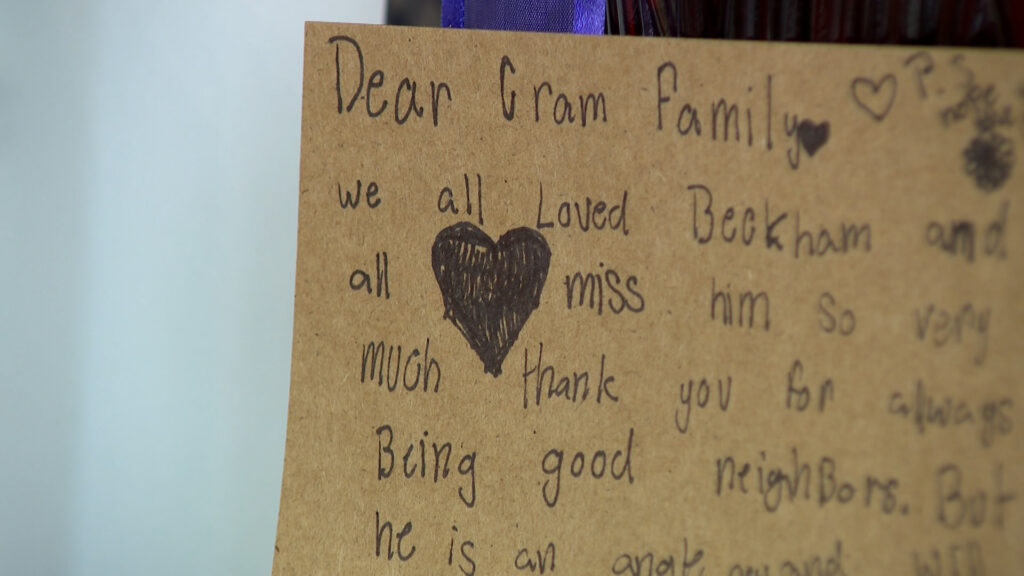 Dear Cram Family
P. See
we all Loved Beckham and
all miss him so very
much thank you for always
Being good neighBors. But
he is an angel and will